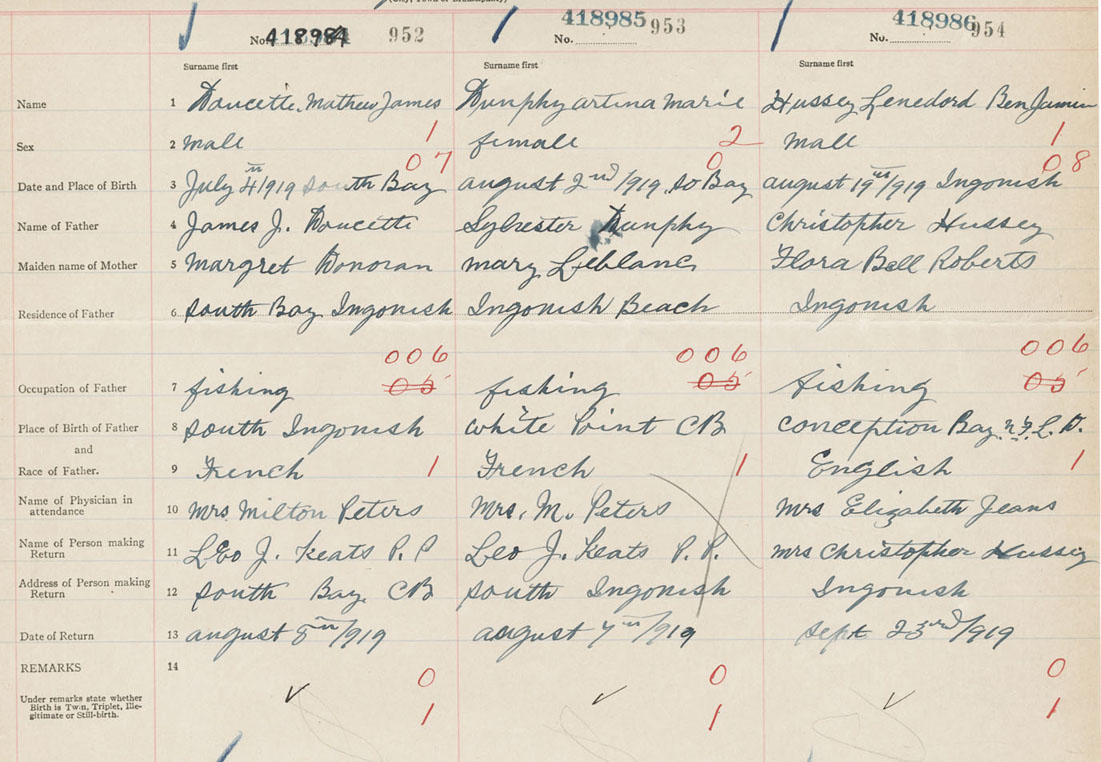 No. 418984 952 418985 No. 953 418986 No. 954
Surname first Surname first Surname first
Name 1 Doucette, Mathew James Dunphy artina marie Hussey Lenedord Benjamin
1 2 1
Sex 2 male female male
07 0 08
Date and Place of Birth 3 July 4th/1919 South Bay august 2nd/1919, So Bay august 19th/1919 Ingonish
Name of Father 4 James J. Doucette Sylvester Dunphy Christopher Hussey
Maiden name of Mother 5 Margret Donovan mary Leblanc Flora Bell Roberts
Residence of Father 6 South Bay Ingonish Ingonish Beach Ingonish
006 006 006
Occupation of Father 7 fishing 05 fishing 05 fishing 05
Place of Birth of Father 8 South Ingonish white Point CB Conception Bay. N.F.L.D.
and
Race of Father. 9 French 1 French 1 English 1
Name of Physician in
attendance 10 Mrs. Milton Peters Mrs. M. Peters Mrs Elizabeth Jeans
Name of Person making
Return 11 Leo J. Keats P.P Leo J. Keats P.P. Mrs Christopher Hussey
Address of Person making
Return 12 South Bay, CB South Ingonish Ingonish
Date of Return 13 august 8th/1919 august 7th/1919 Sept 23rd/1919
REMARKS 14
0 0 0
Under remarks state whether
Birth is Twin, Triplet, Ille-
gitimate or Still-birth.
1 1 1